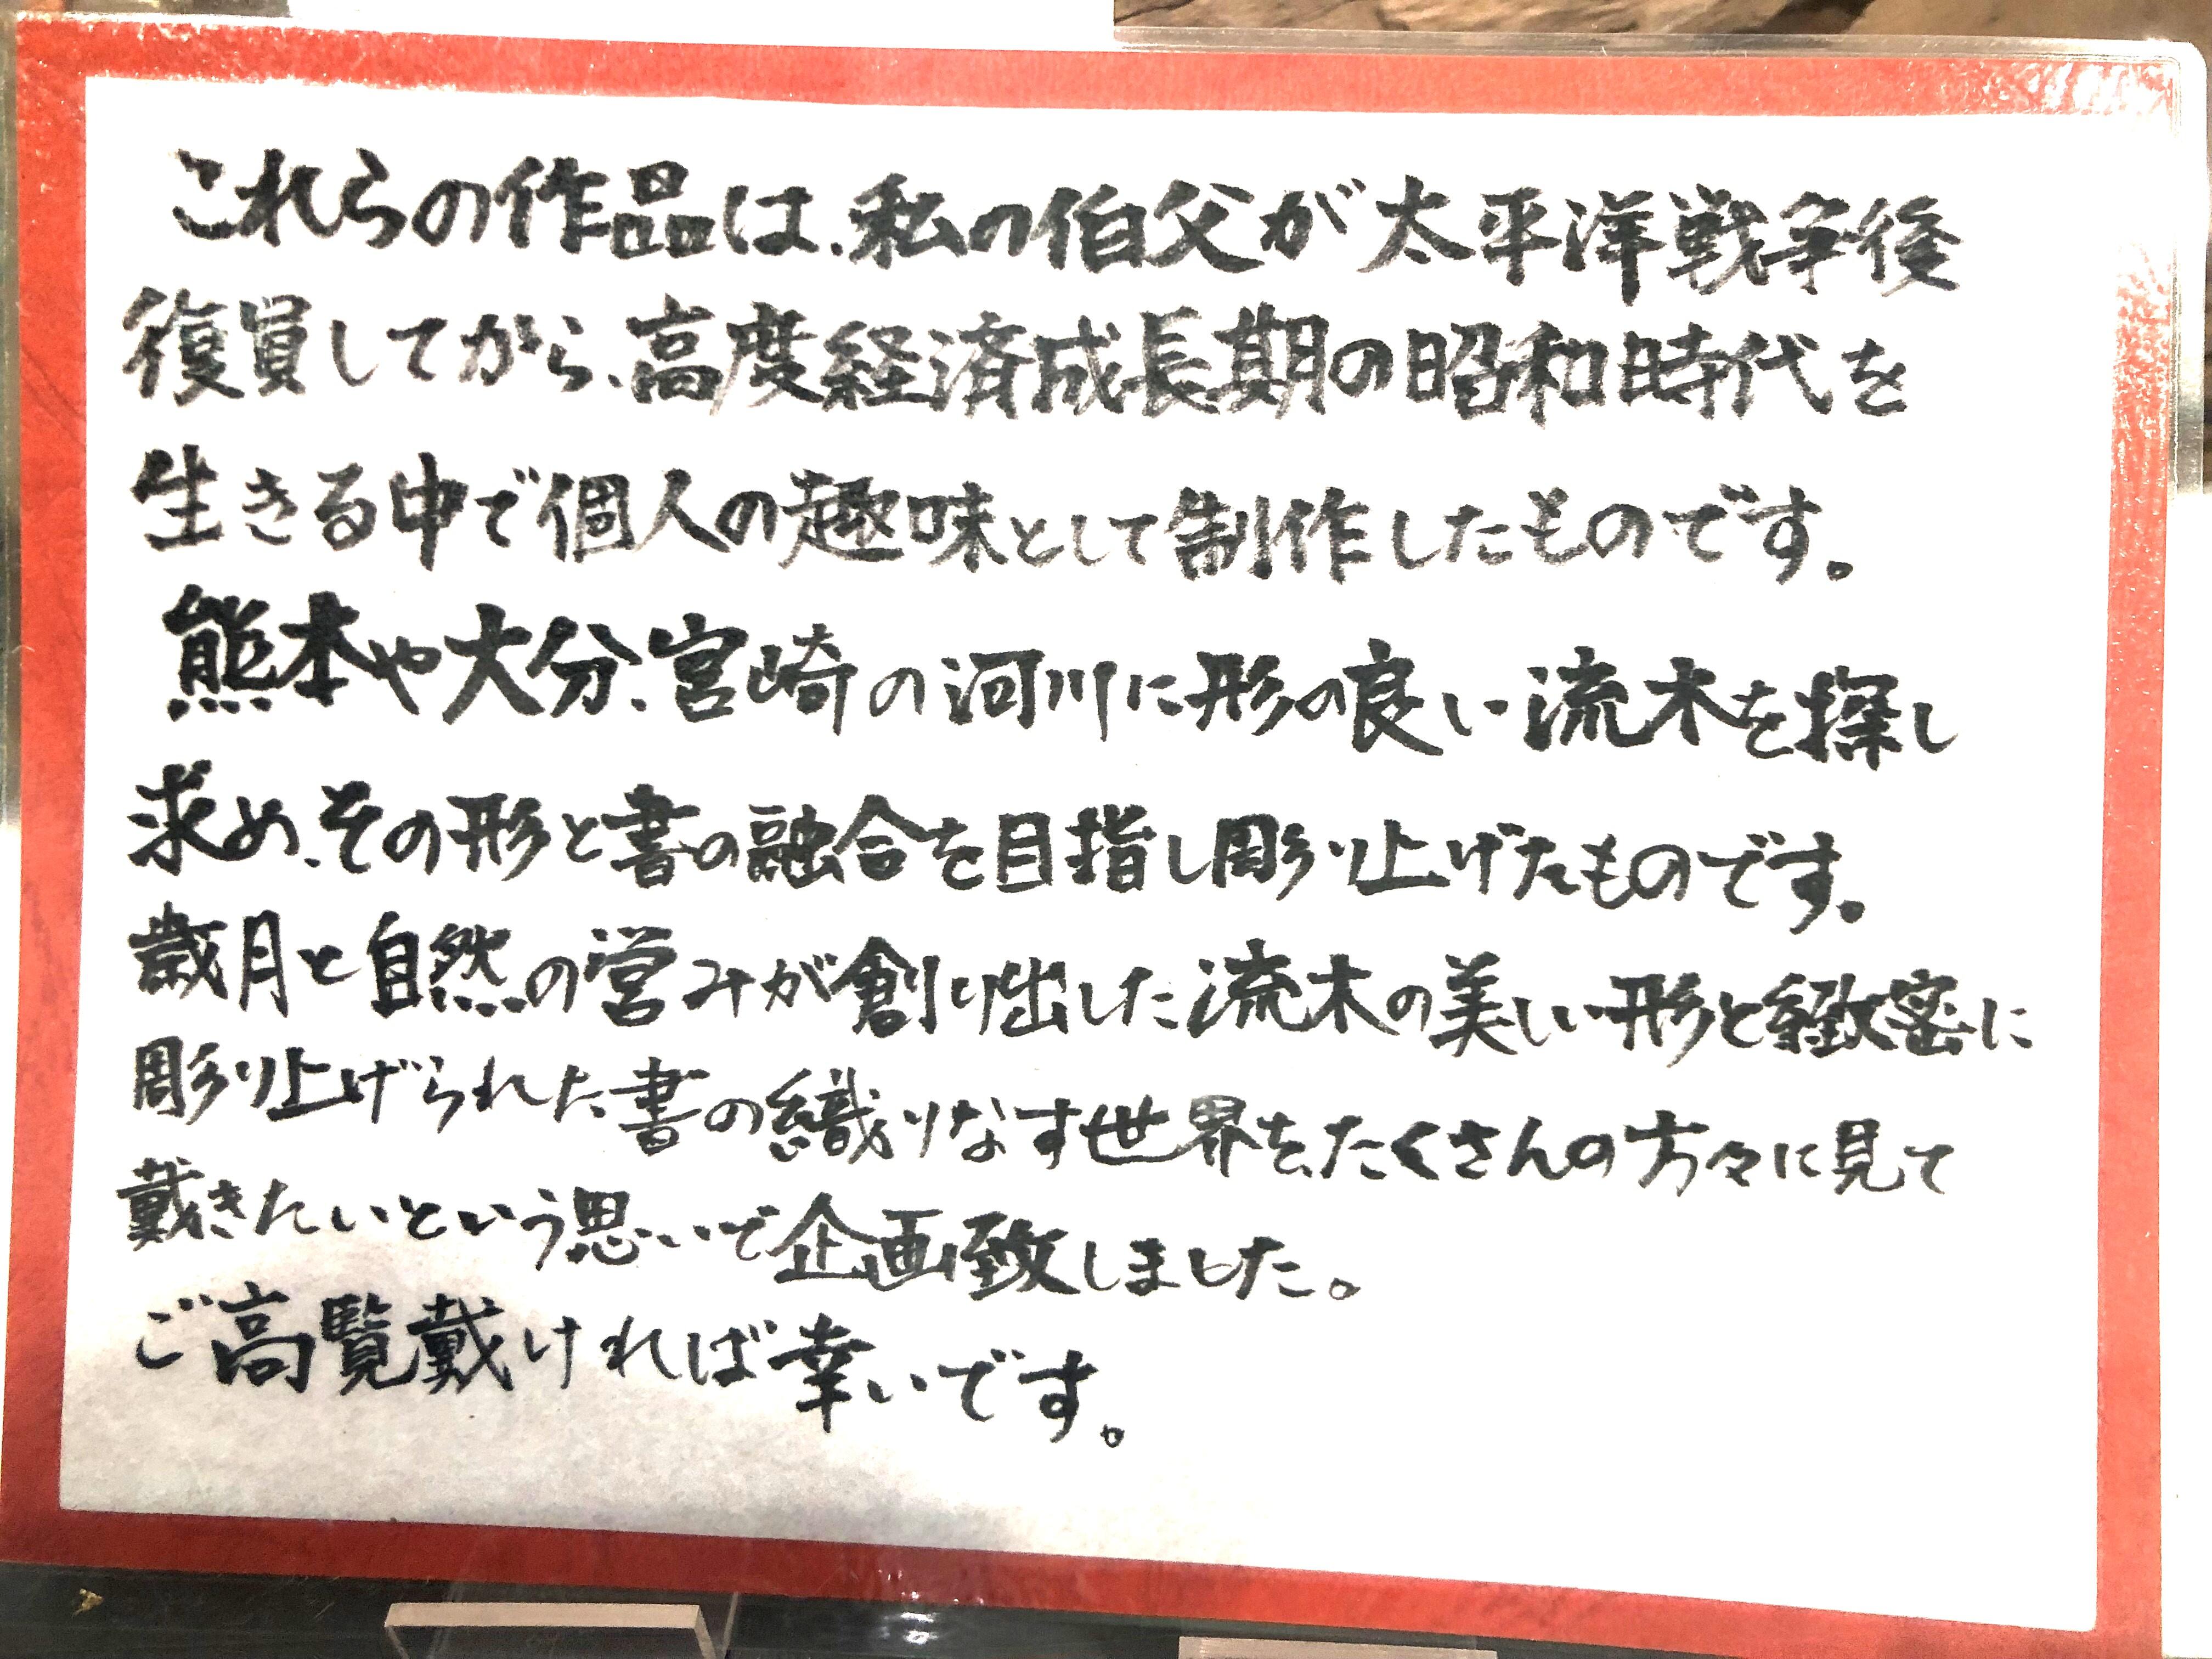 これらの作品は、私の伯父が太平洋戦争後
復員してから、高度経済成長期の昭和時代を
生きる中で個人の趣味として制作したものです。
熊本や大分、宮崎の河川に形の良い流木を探し
求め、その形と書の融合を目指し彫り上げたものです。
歳月と自然の営みが創り出した流木の美しい形と緻密に
彫り上げられた書の織りなす世界を、たくさんの方々に見て
戴きたいという思いで企画致しました。
ご高覧戴ければ幸いです。